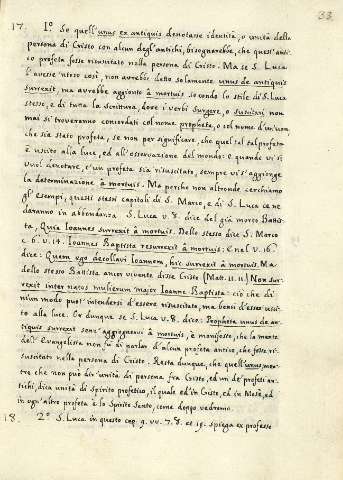 33
17. Iº Se quell'unus ex antiquis denotasse identità, o unità della
persona di Cristo con alcun degl'antichi, bisognarebbe, che quest'anti-
co profeta fosse risuscitato nella persona di Cristo. Ma se S. Luca
l'avesse 'nteso così, non avrebbe detto solamente unus de antiquis
surrexit, ma avrebbe aggionto à mortuis, secondo lo stile di S. Luca
stesso, e di tutta la scrittura, dove i verbi surgere, o suscitari non
mai si troveranno concordati col nome propheta, o col nome d'un'uom
che sia stato profeta, se non per significare, che quel tal profeta
è uscito alla luce, ed all'osservazione del mondo: e quando vi si
vuol denotare, ch'un profeta sia risuscitato, sempre vi s'aggionge
la determinazione à mortuis. Ma perche non altronde cerchiamo
gl'esempi, questi stessi capitoli di S. Marco, e di S. Luca ce ne
daranno in abbondanza. S. Luca v. 8. dice del già morto Battis-
ta, Quia Ioannes surrexit à mortuis. Dello stesso dice S. Marco
c. 6. v. 14. Ioannes Baptista resurrexit à mortuis: e nel v. 16.
dice: Quem ego decollavi Ioannem, hic surrexit à mortuis. Ma
dello stesso Battista ancor vivente disse Cristo (Matt. 11. 11.) Non sur-
rexit inter natos mulierum major Ioanne Baptista: ciò che di
niun modo puot'intendersi d'essere risuscitato, ma bensì d'esser usci-
to alla luce. Or dunque se S. Luca v. 8. dice: Propheta unus de an-
tiquis surrexit senz'aggiongervi à mortuis, è manifesto, che la mente
del Evangelista non fu di parlar d'alcun profeta antico, che fosse ri-
suscitato nella persona di Cristo. Resta dunque, che quell'unus, men-
tre che non può dir'unità di persona fra Cristo, ed un de' profeti an-
tichi, dica unità di Spirito profetico, il quale ed in Cristo, ed in Mosè, ed
in ogn'altro profeta è lo Spirito Santo, come doppo vedremo.
18. 2º S. Luca in questo cap. 9. vv. 7. 8. et 19. spiega ex professo